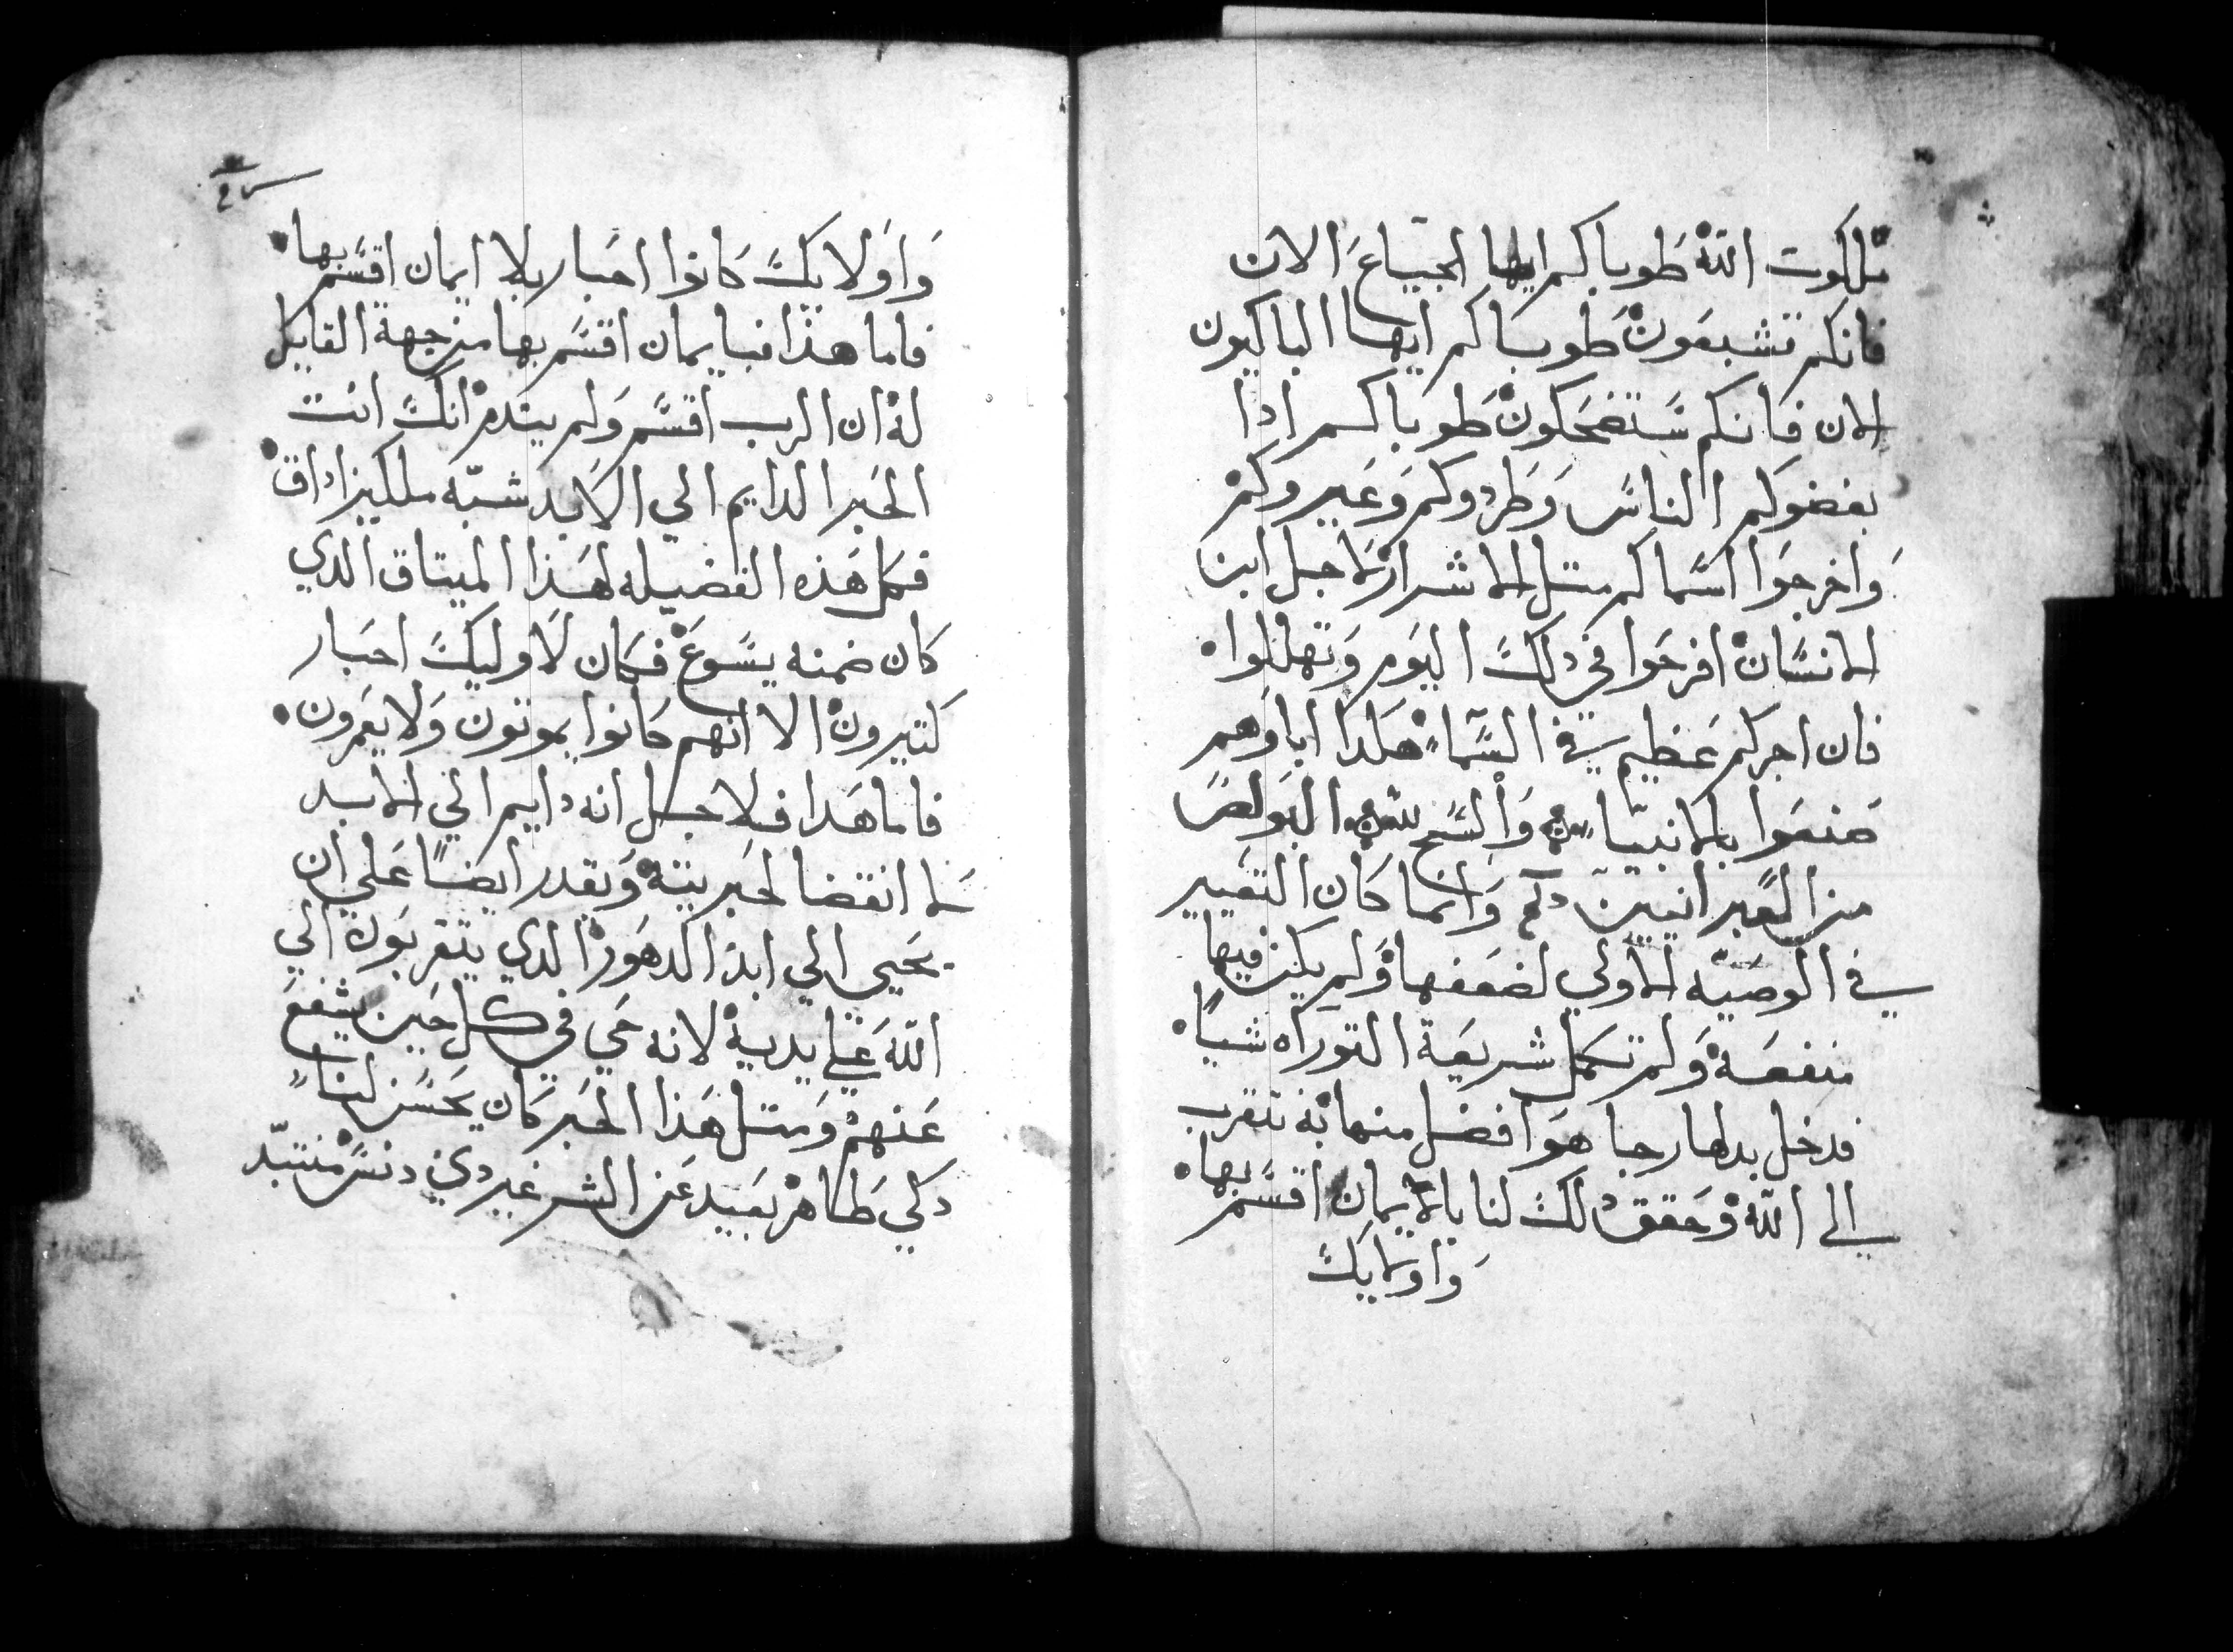 ملكوت الله طوباكم ايها الجياع الان
فانكم تشبعون طوباكم ايها الباكيون
الان فانكم ستضحكون طوباكم ادا
بغضوكم الناس وطردوكم وعيروكم
واخرجوا اسماكم متل الاشرار لاجل ابن
الانسان افرحوا في دلك اليوم وتهللوا
فان اجركم عظيم في السماء هكدا اباوهم
صنعوا بالانبياء والسبح لله البولص
من العبرانيين وانما كان التغيير
في الوصيه الاولي لضعفها ولم يكن فيها
منفعة ولم تكمل شريعة التوراه شياً
فدخل بدلها رجا هو افضل منها به نتقرب
الي الله وحقق دلك لنا بالايمان اقسم بها
واولايك
واولايك كانوا احبار بلا ايمان اقسم بها
فاما هذا فبايمان اقسم بها من جهة القايل
له ان الرب اقسم ولم يندم انك انت
الحبر الدايم الي الابد شبه ملكيزاداق
فكل هذه الفضيله لهذا الميتاق الدي
كان ضمنه يسوع فكان لاوليك احبار
كتيرون الا انهم كانوا يموتون ولا يعمرون
فاما هدا فلاجل انه دايم الي الابد
لا انقضا لحبريته ويقدر ايضاً علي ان
يحيي الي ابد الدهور الدي يتقربون الي
الله علي يديه لانه حي في كل حين يشفع
عنهم ومتل هذا الحبر كان يحسن لنا
دكي طاهر بعيد عن الشر غير دي دنس منتبد